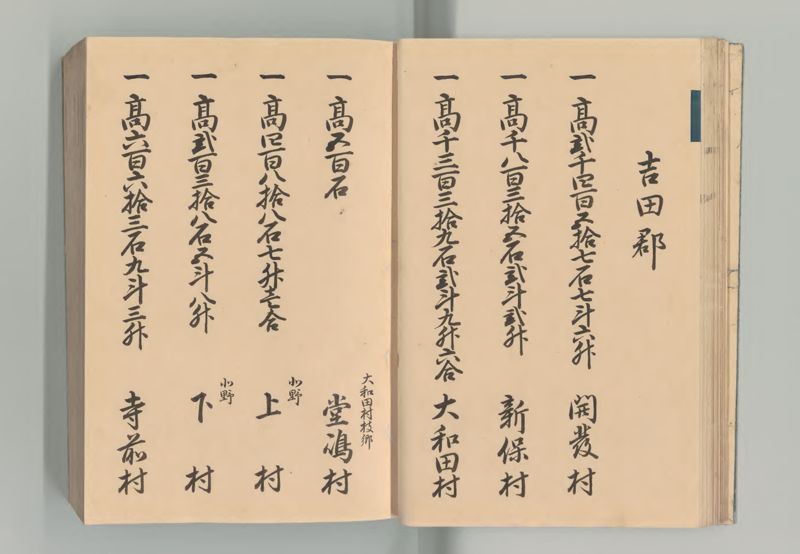 吉田郡
一高弐千四百五拾七石七斗六升 開發村
一高千八百三拾五石弐斗弐升 新保村
一高千三百三拾九石弐斗九升六合 大和田村
大和田村枝郷
一高五百石 堂嶋村
小野
一高四百八拾八石七升壱合 上村
小野
一高弐百三拾八石五斗八升 下村
一高六百六拾三石九斗三升 寺前村